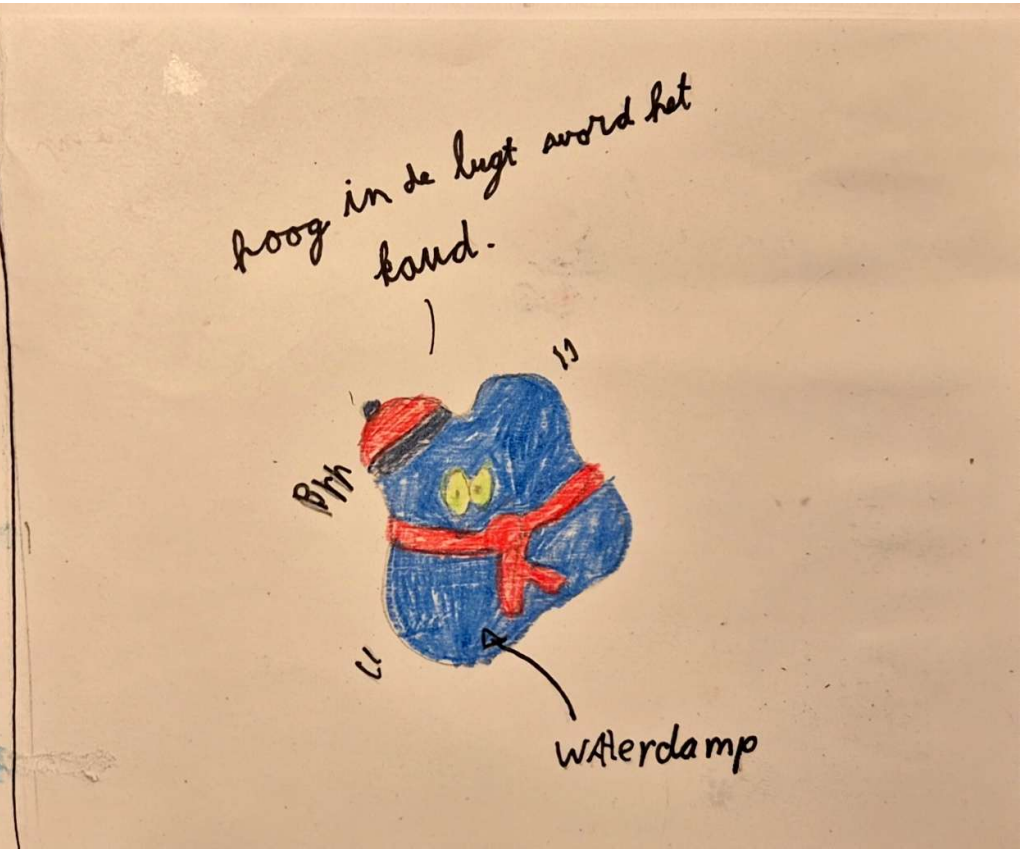 hoog in de lugt word het
koud.
Brr
waterdamp